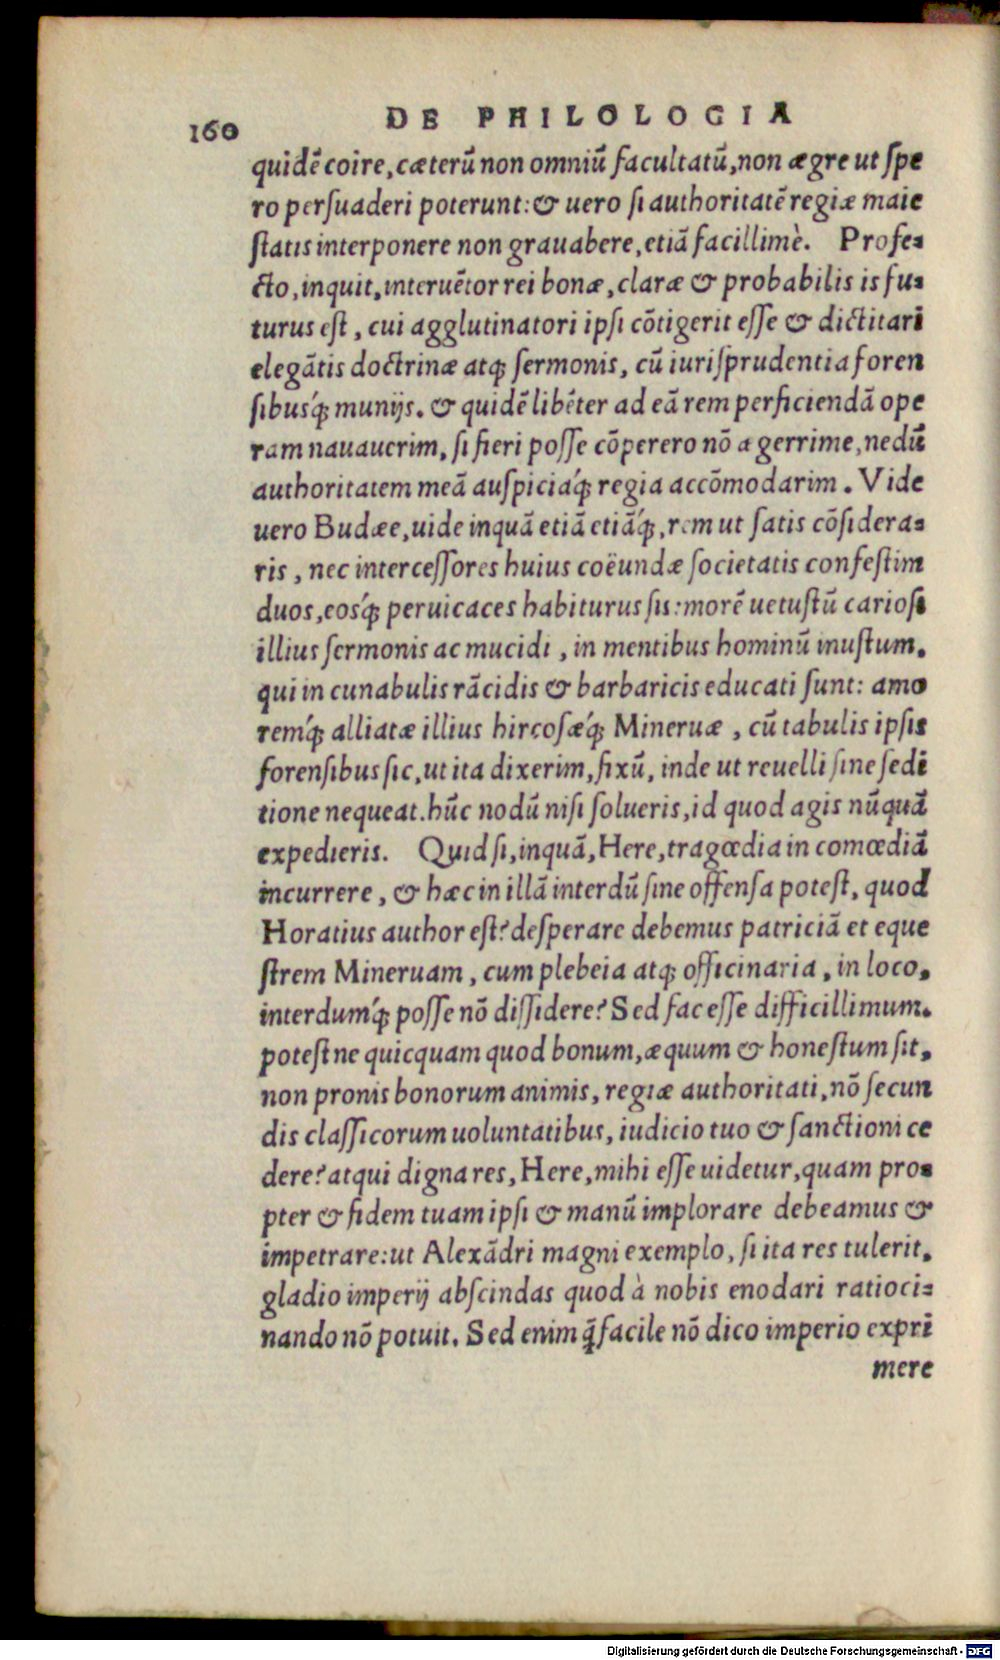 160
DE PHILOLOGIA
quidē coire, cæterū non omniū facultatū, non ægre ut spe
ro persuaderi poterunt: & uero si authoritatē regiæ maie
statis interponere non grauabere, etiā facillimè. Profe=
cto, inquit, interuētor rei bonæ, claræ & probabilis is fu=
turus est, cui agglutinatori ipsi cōtigerit esse & dictitari
elegātis doctrinæ atq; sermonis, cū iurisprudentia foren
sibusq́; munijs. & quidē libēter ad eā rem perficiendā ope
ram nauauerim, si fieri posse cōperero nō ægerrime, nedū
authoritatem meā auspiciaq́; regia accōmodarim. Vide
uero Budæe, uide inquā etiā etiāq́;, rem ut satis cōsidera=
ris, nec intercessores huius coëundæ societatis confestim
duos, eosq́; peruicaces habiturus sis: morē uetustū cariosi
illius sermonis ac mucidi, in mentibus hominū inustum,
qui in cunabulis rācidis & barbaricis educati sunt: amo
remq́; alliatæ illius hircosæq́; Mineruæ, cū tabulis ipsis
forensibus sic, ut ita dixerim, fixū, inde ut reuelli sine sedi
tione nequeat. hūc nodū nisi solueris, id quod agis nūquā
expedieris. Quid si, inquā, Here, tragœdia in comœdiā
incurrere, & hæc in illā interdū sine offensa potest, quod
Horatius author est? desperare debemus patriciā et eque
strem Mineruam, cum plebeia atq; officinaria, in loco,
interdumq́; posse nō dissidere? Sed fac esse difficillimum.
potestne quicquam quod bonum, æquum & honestum sit,
non pronis bonorum animis, regiæ authoritati, nō secun
dis classicorum uoluntatibus, iudicio tuo & sanctioni ce
dere? atqui digna res, Here, mihi esse uidetur, quam pro=
pter & fidem tuam ipsi & manū implorare debeamus &
impetrare: ut Alexādri magni exemplo, si ita res tulerit,
gladio imperij abscindas quod à nobis enodari ratioci=
nando nō potuit. Sed enim q̄ facile nō dico imperio expri
mere
Digitalisierung gefördert durch die Deutsche Forschungsgemeinschaft - DFG